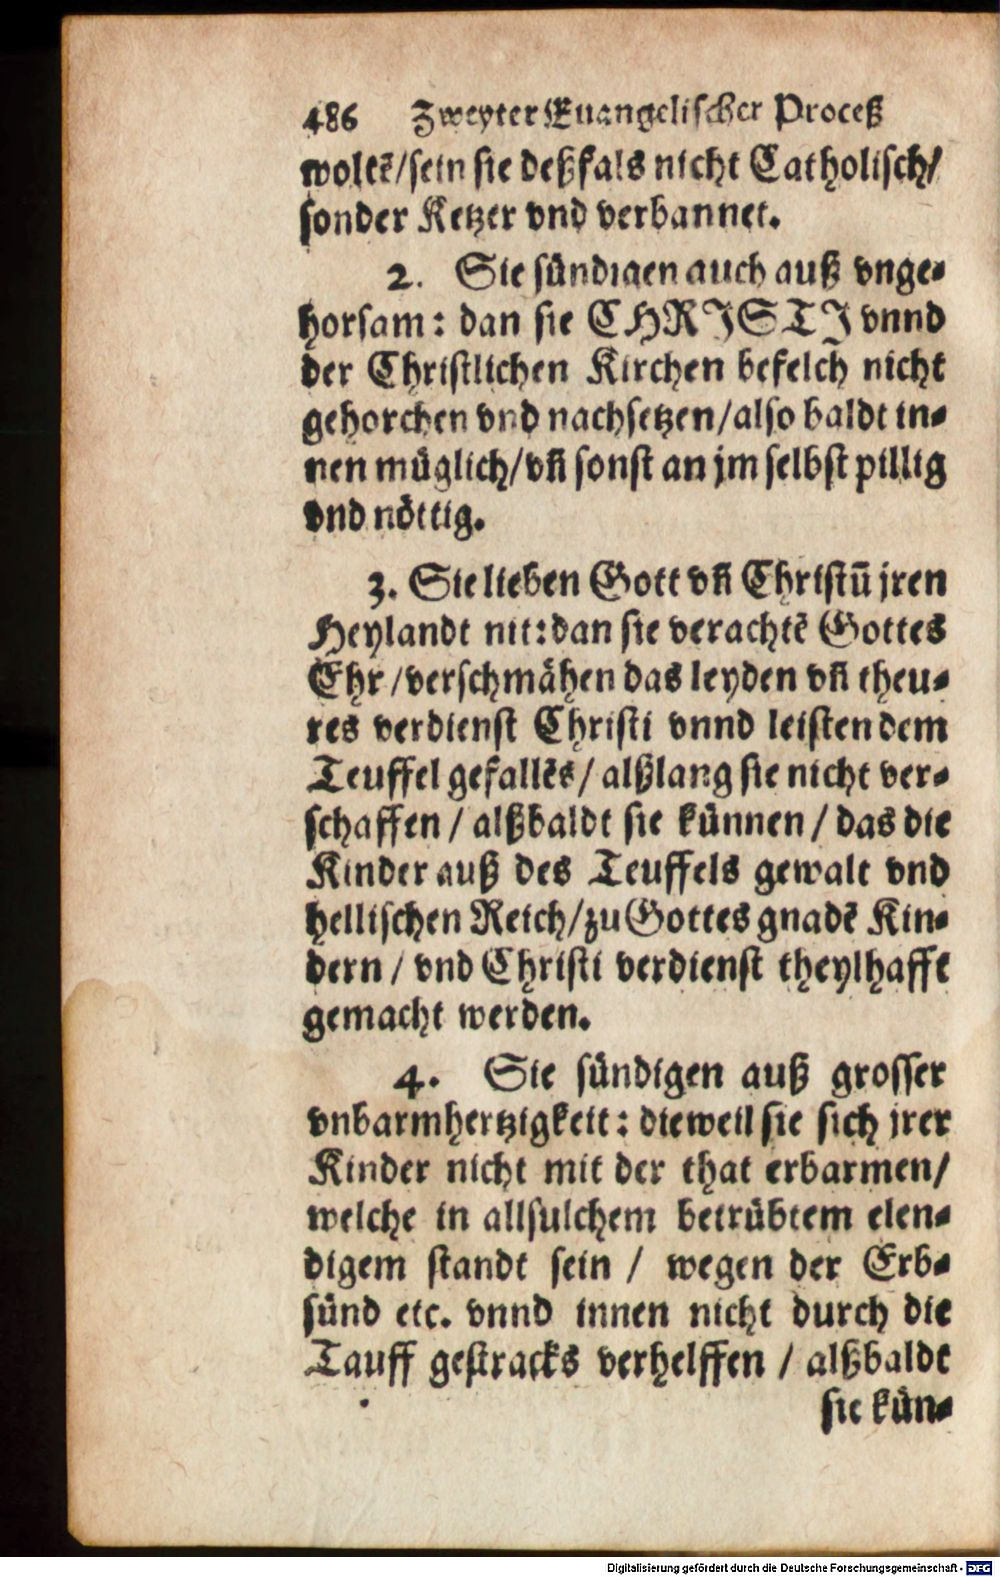 486 Zweyter Euangelischer Proceß
woltẽ/sein sie deßfals nicht Catholisch/
sonder Ketzer vnd verbannet.
2. Sie sündigen auch auß vnge-
horsam: dan sie CHRISTI vnnd
der Christlichen Kirchen befelch nicht
gehorchen vnd nachsetzen/also baldt in-
nen müglich/vñ sonst an jm selbst pillig
vnd nöttig.
3. Sie lieben Gott vñ Christũ jren
Heylandt nit: dan sie verachtẽ Gottes
Ehr/verschmähen das leyden vñ theu-
res verdienst Christi vnnd leisten dem
Teuffel gefallẽs/alßlang sie nicht ver-
schaffen/alßbaldt sie künnen/das die
Kinder auß des Teuffels gewalt vnd
hellischen Reich/zu Gottes gnadẽ Kin-
dern/vnd Christi verdienst theylhafft
gemacht werden.
4. Sie sündigen auß grosser
vnbarmhertzigkeit: dieweil sie sich jrer
Kinder nicht mit der that erbarmen/
welche in allsulchem betrübtem elen-
digem standt sein/wegen der Erb-
sünd etc. vnnd innen nicht durch die
Tauff gestracks verhelffen/alßbaldt
sie kün-
Digitalisierung gefördert durch die Deutsche Forschungsgemeinschaft - DFG